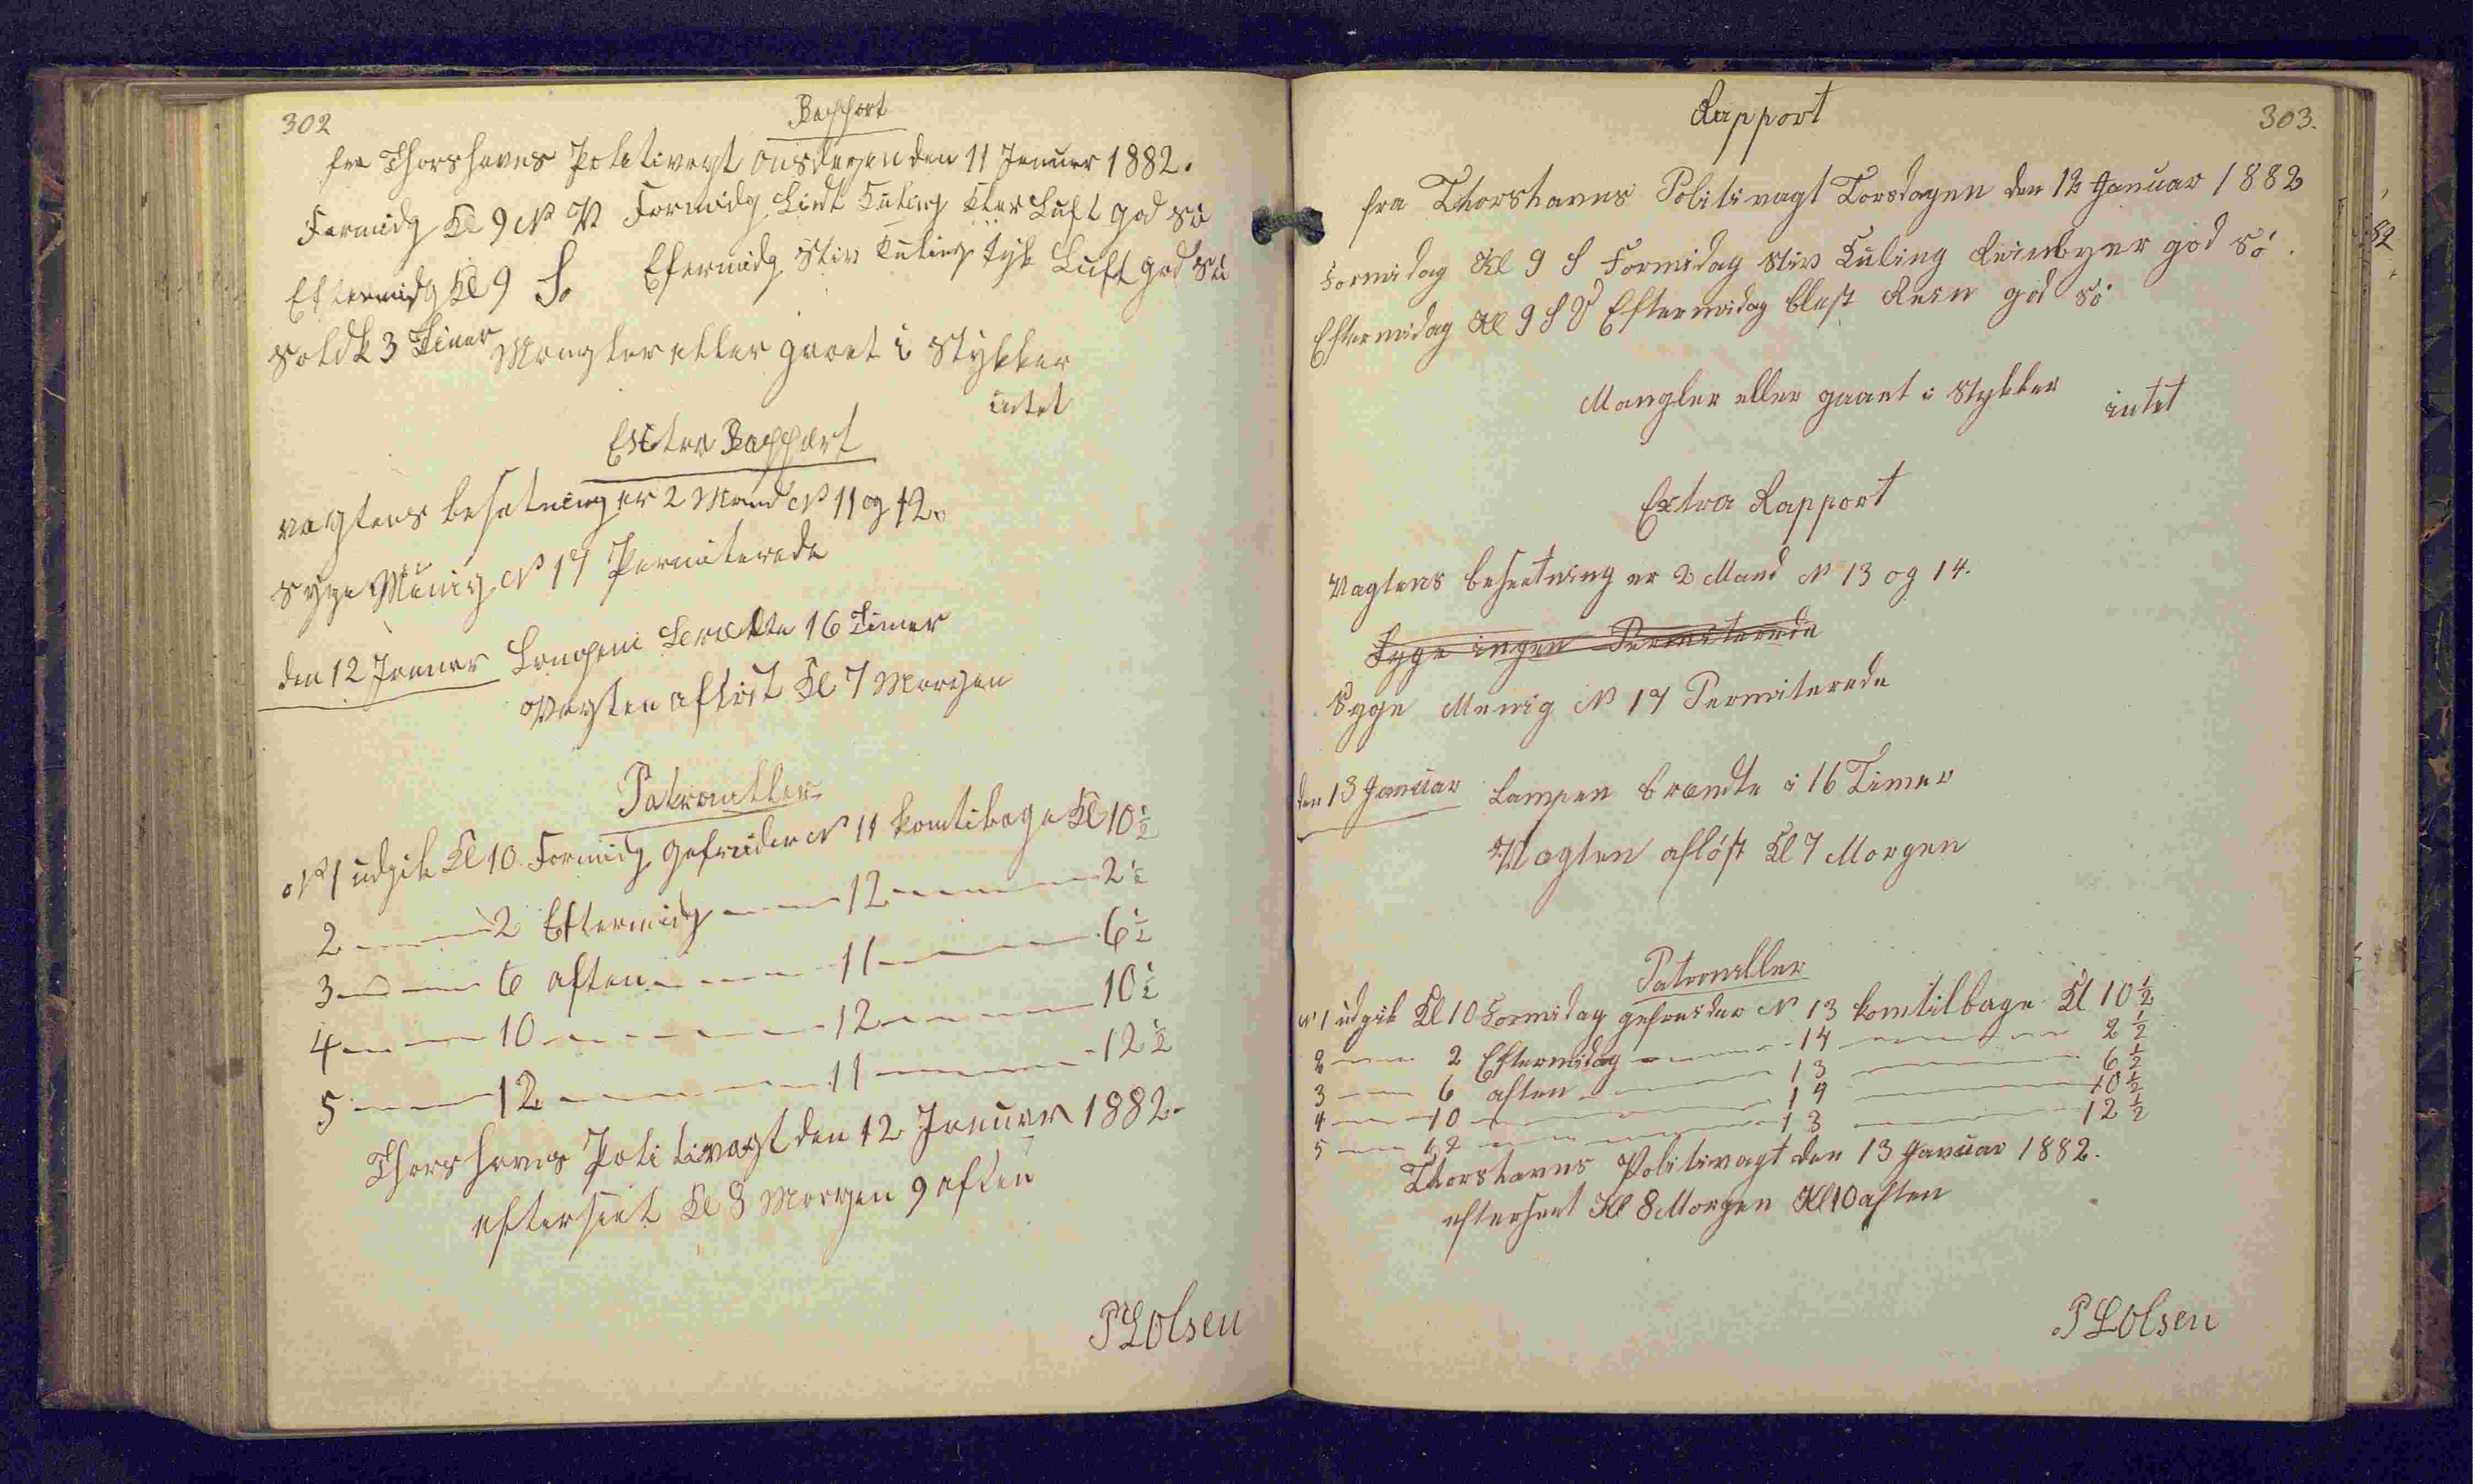 302
Rapport
fra Thorshavns Politivagt Onsdagen den 11 Januar 1882.
Formidg Kl 9 N V Formidg Lint Kuling Klar Luft god Sö
Eftermidg Kl 9 S. Efermidg Stiv Kuling Tyk Luft god Sö
Soldk 3 Timer
Mangler eller gaaet i Stykker
intet
Extra Rapport
Vagtens besætning er 2 Mand N 11 og 12.
Syge Menig N 17 Permiterede
den 12 Januar Lampen brændte 16 Timer
Vagten aflöst Kl 7 Morgen
Patrouller
N 1 udgik Kl 10 Formidg gefreider N 11 komtibage Kl 10 1/2
2 — 2 Eftermidg — 12 — 2 1/2
3 — 6 aften — 11 — 6 1/2
4 — 10 — 12 — 10 1/2
5 — 12 — 11 — 12 1/2
Thorshavns Politivagt den 12 Januar 1882.
efterseet Kl 8 Morgen 9 aften
P L Olsen
Rapport
303.
fra Thorshavns Politivagt Torsdagen den 12 Januar 1882
Formidag Kl 9 S Formidag Stiv Kuling Reinbyer god Sö.
Eftermidag Kl 9 S V Eftermidag blæst Rein god Sö
Mangler eller gaaet i Stykker
intet
Extra Rapport
Vagtens besætning er 2 Mand N 13 og 14.
Syge ingen Permiterede
Syge Menig N 17 Permiterede
den 13 Januar Lampen brændte i 16 Timer
Vagten aflöst Kl 7 Morgen
Patrouller
N 1 udgik Kl 10 Formidag gefreider N 13 komtilbage Kl 10 1/2
2 — 2 Eftermidag — 14 — 2 1/2
3 — 6 aften — 13 — 6 1/2
4 — 10 — 14 — 10 1/2
5 — 12 — 13 — 12 1/2
Thorshavns Politivagt den 13 Januar 1882.
efterseet Kl 8 Morgen Kl 10 aften
P L Olsen